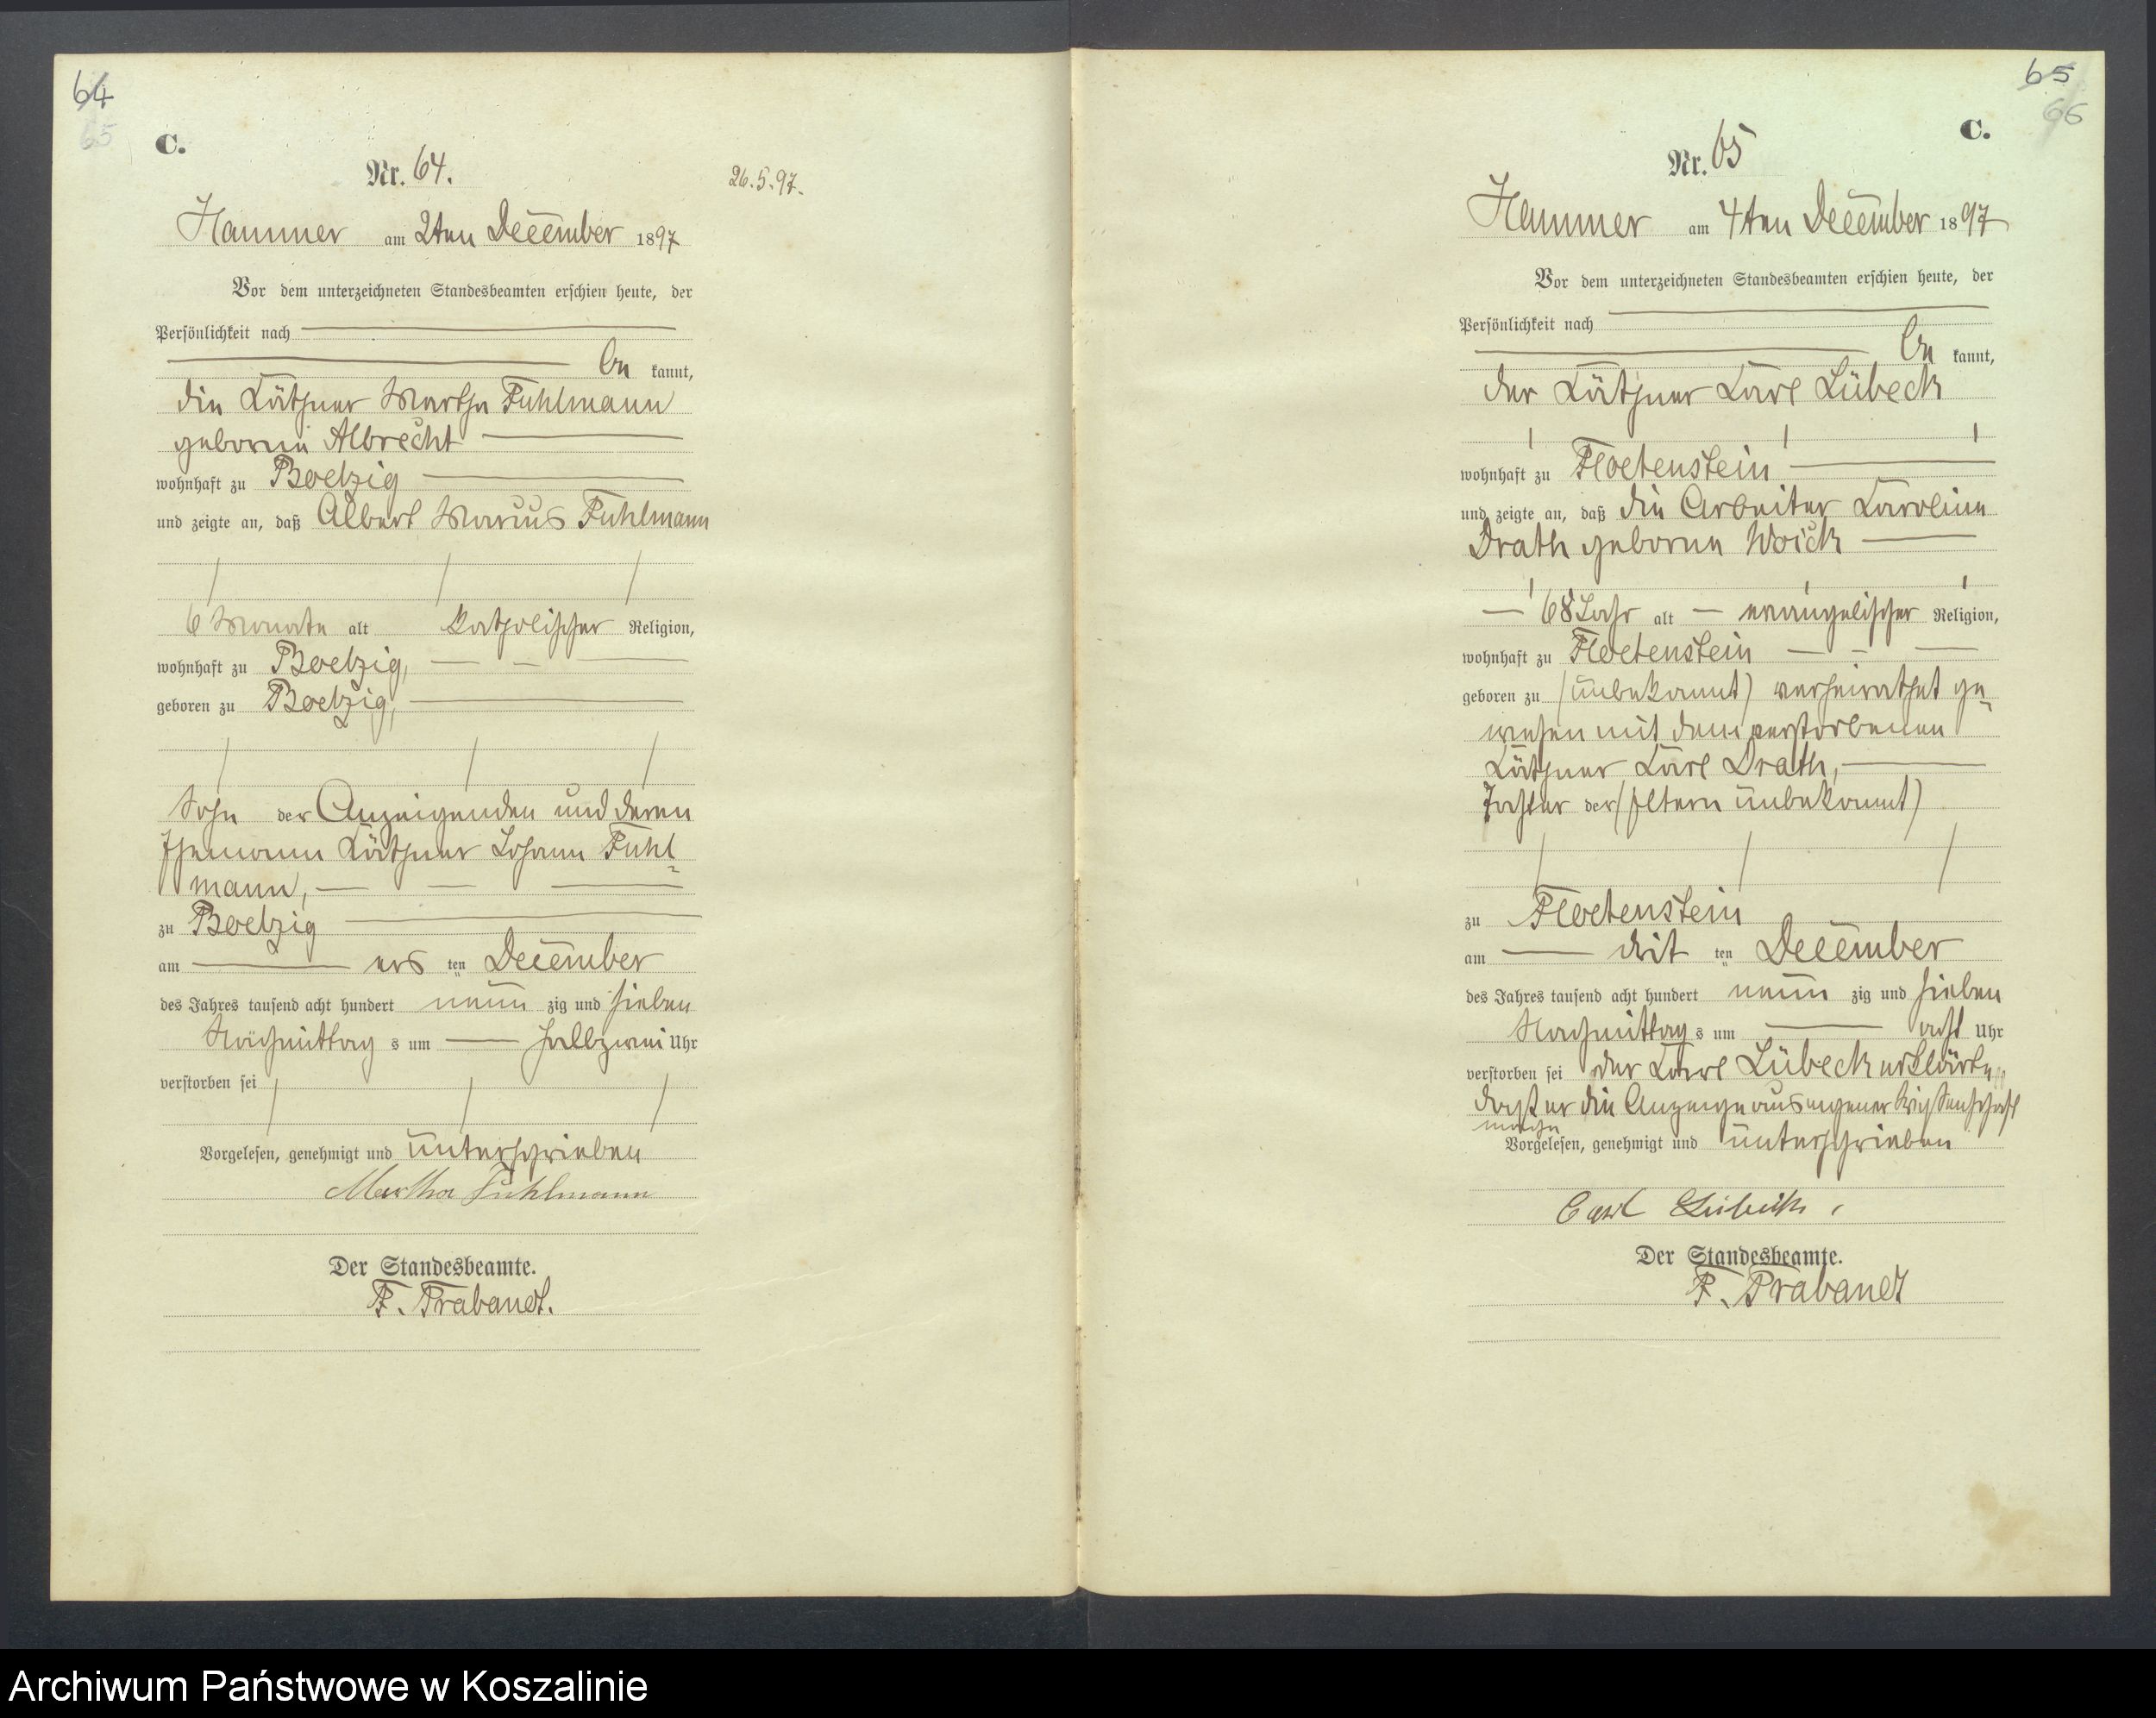 64
65
C.
Nr. 64.
26.5.97.
Hammer am 2ten December 1897
Vor dem unterzeichneten Standesbeamten erschien heute, der
Persönlichkeit nach
be kannt,
die Käthner Martha Fuhlmann
geborne Albrecht
wohnhaft zu Boelzig
und zeigte an, daß Albert Marius Fuhlmann
6 Monate alt katholischer Religion,
wohnhaft zu Boelzig,
geboren zu Boelzig,
Sohn der Anzeigenden und deren
Ehemann Käthner Johann Fuhl
mann,
zu Boelzig
am ers ten December
des Jahres tausend acht hundert neun zig und sieben
Nachmittag s um halbzwei Uhr
verstorben sei
Vorgelesen, genehmigt und unterschrieben
Martha Fuhlmann
Der Standesbeamte.
F. Brabandt.
65
66
C.
Nr. 65
Hammer am 4ten December 1897
Vor dem unterzeichneten Standesbeamten erschien heute, der
Persönlichkeit nach
be kannt,
der Käthner Karl Lübeck
wohnhaft zu Floetenstein
und zeigte an, daß die Arbeiter Karoline
Drath geborne Woick
68 Jahr alt evangelischer Religion,
wohnhaft zu Floetenstein
geboren zu (unbekannt) verheirathet ge
wesen mit dem verstorbenen
Käthner Karl Drath,
Tochter der (Eltern unbekannt)
zu Floetenstein
am drit ten December
des Jahres tausend acht hundert neun zig und sieben
Nachmittag s um acht Uhr
verstorben sei der Karl Lübeck erklärte,
daß er die Anzeige aus eigener Wissenschaft
mache
Vorgelesen, genehmigt und unterschrieben
Carl Lübeck
Der Standesbeamte.
F. Brabandt
Archiwum Państwowe w Koszalinie